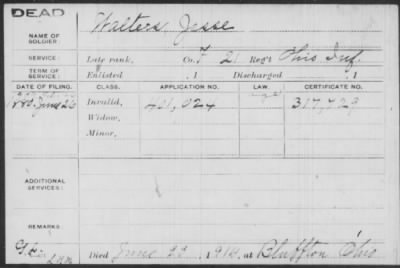 DEAD
NAME OF SOLDIER: Walters, Jesse
SERVICE: Late rank, Co. F 21 Reg't Ohio Inf.
TERM OF SERVICE: Enlisted , 1 Discharged , 1
DATE OF FILING. CLASS. APPLICATION NO. LAW. CERTIFICATE NO.
June 26 Invalid, 317,729
Widow,
Minor,
ADDITIONAL SERVICES:
REMARKS:
Died June 22, 191 at Bluffton Ohio